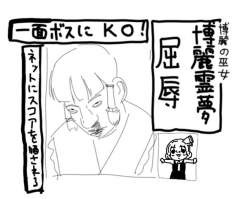 博麗の巫女
博麗霊夢
屈辱
一面ボスにKO!
ネットにスコアを晒される